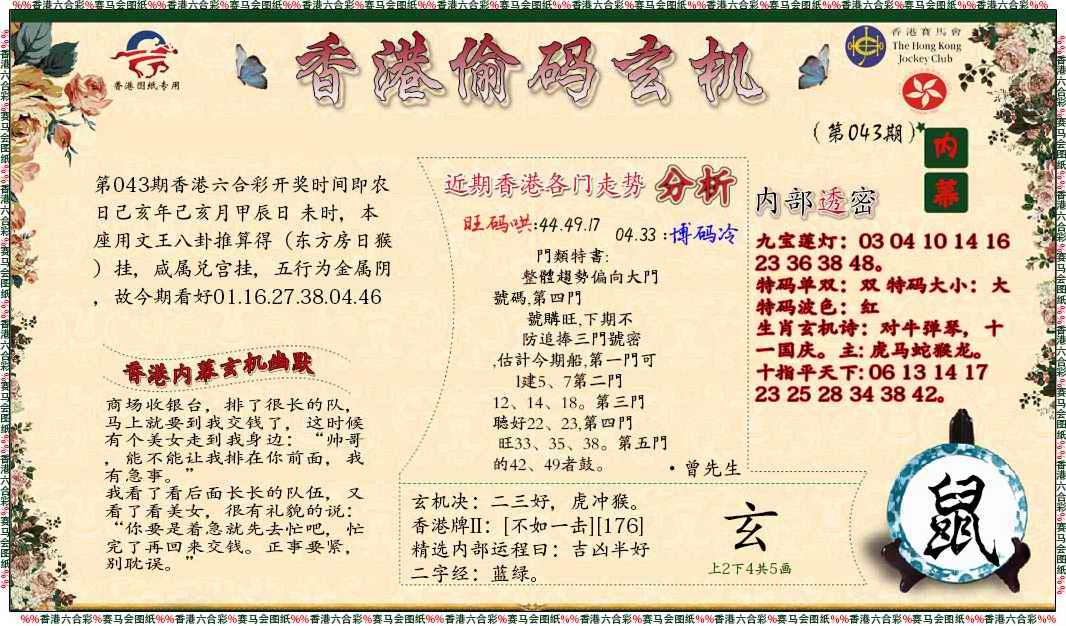 %%香港六合彩%赛马会图纸%%香港六合彩%赛马会图纸%%香港六合彩%赛马会图纸%%香港六合彩%赛马会图纸%%香港六合彩%赛马会图纸%%香港六合彩%赛马会图纸%%香港六合彩%%
香港图纸专用
香港偷码玄机
香港賽馬會
The Hong Kong
Jockey Club
(第043期)
内
幕
第043期香港六合彩开奖时间即农
日己亥年己亥月甲辰日 未时，本
座用文王八卦推算得（东方房日猴
）挂，咸属兑宫挂，五行为金属阴
，故今期看好01.16.27.38.04.46
香港内幕玄机幽默
商场收银台，排了很长的队，
马上就要到我交钱了，这时候
有个美女走到我身边：“帅哥
，能不能让我排在你前面，我
有急事。”
我看了看后面长长的队伍，又
看了看美女，很有礼貌的说：
“你要是着急就先去忙吧，忙
完了再回来交钱。正事要紧，
别耽误。”
近期香港各门走势 分析
旺码哄:44.49.17
04.33 :博码冷
門類特書:
整體趨勢偏向大門
號碼,第四門
號購旺,下期不
防追捧三門號密
,估計今期船,第一門可
1建5、7第二門
12、14、18。第三門
聽好22、23,第四門
旺33、35、38。第五門
的42、49者鼓。
·曾先生
内部透密
九宝莲灯：03 04 10 14 16
23 36 38 48。
特码单双：双 特码大小：大
特码波色：红
生肖玄机诗：对牛弹琴，十
一国庆。主: 虎马蛇猴龙。
十指平天下: 06 13 14 17
23 25 28 34 38 42。
玄机决：二三好，虎冲猴。
香港牌II：[不如一击][176]
精选内部运程曰：吉凶半好
二字经：蓝绿。
玄
上2下4共5画
鼠
%%香港六合彩%赛马会图纸%%香港六合彩%赛马会图纸%%香港六合彩%赛马会图纸%%香港六合彩%赛马会图纸%%香港六合彩%赛马会图纸%%香港六合彩%赛马会图纸%%香港六合彩%%